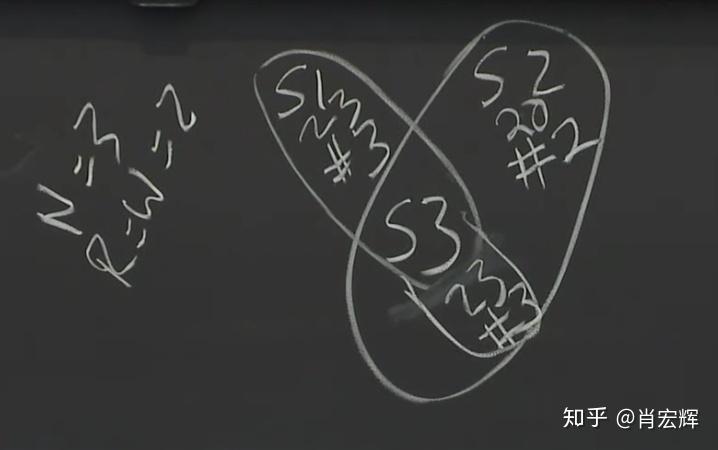 N=3
R=W=2
S1
23
#3
S2
20
#2
S3
23
#3
知乎 @肖宏辉